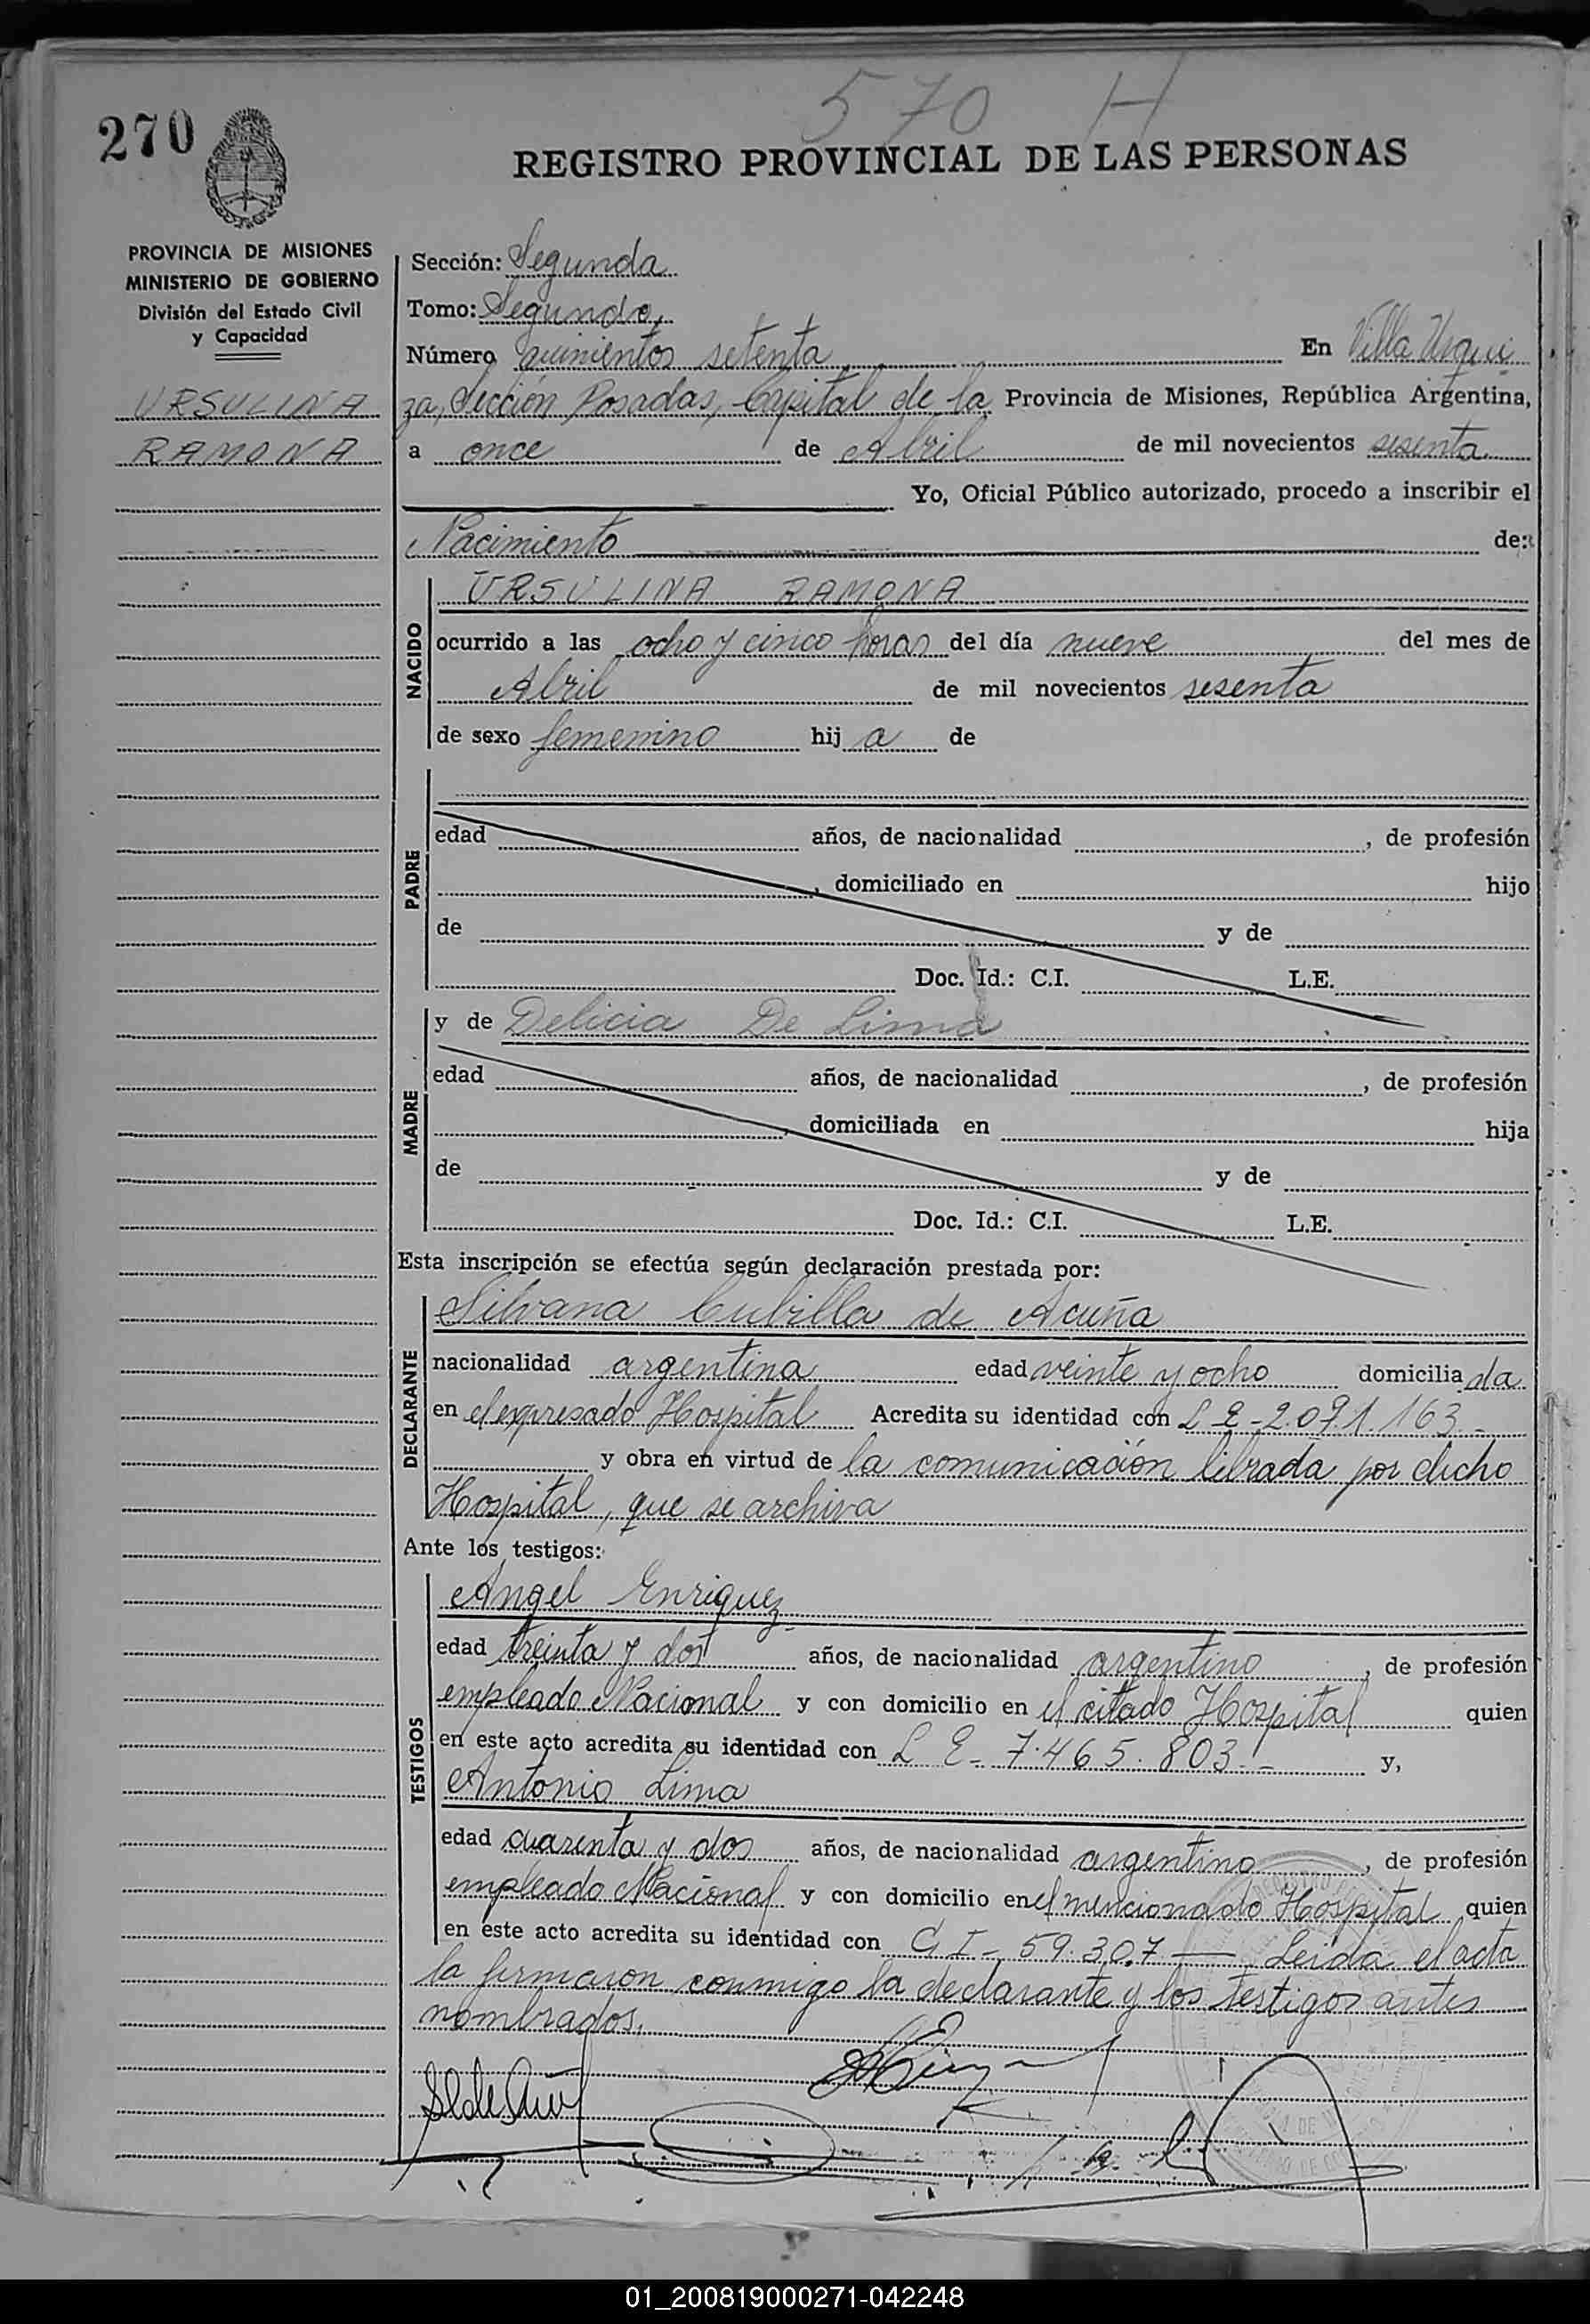 570 H
270
REGISTRO PROVINCIAL DE LAS PERSONAS
PROVINCIA DE MISIONES
MINISTERIO DE GOBIERNO
División del Estado Civil
y Capacidad
URSULINA
RAMONA
Sección: Segunda
Tomo: Segundo,
Número quinientos setenta En Villa Urqui
za, Sección Posadas, Capital de la Provincia de Misiones, República Argentina,
a once de Abril de mil novecientos sesenta
Yo, Oficial Público autorizado, procedo a inscribir el
Nacimiento de:
NACIDO
URSULINA RAMONA
ocurrido a las ocho y cinco horas del día nueve del mes de
Abril de mil novecientos sesenta
de sexo femenino hij a de
PADRE
edad años, de nacionalidad , de profesión
, domiciliado en hijo
de y de
Doc. Id.: C.I. L.E.
MADRE
y de Delicia De Lima
edad años, de nacionalidad , de profesión
, domiciliada en hija
de y de
Doc. Id.: C.I. L.E.
Esta inscripción se efectúa según declaración prestada por:
DECLARANTE
Silvana Cubilla de Acuña
nacionalidad argentina edad veinte y ocho domicilia da
en el expresado Hospital Acredita su identidad con L E - 2.091.163.-
y obra en virtud de la comunicación librada por dicho
Hospital, que se archiva
Ante los testigos:
TESTIGOS
Angel Enriquez
edad treinta y dos años, de nacionalidad argentino , de profesión
empleado Nacional y con domicilio en el citado Hospital quien
en este acto acredita su identidad con L E - 7.465.803.- y,
Antonio Lima
edad cuarenta y dos años, de nacionalidad argentino , de profesión
empleado Nacional y con domicilio en el mencionado Hospital quien
en este acto acredita su identidad con C I - 59.307 — Leida el acta
la firmaron conmigo la declarante y los testigos antes
nombrados.
01_200819000271-042248